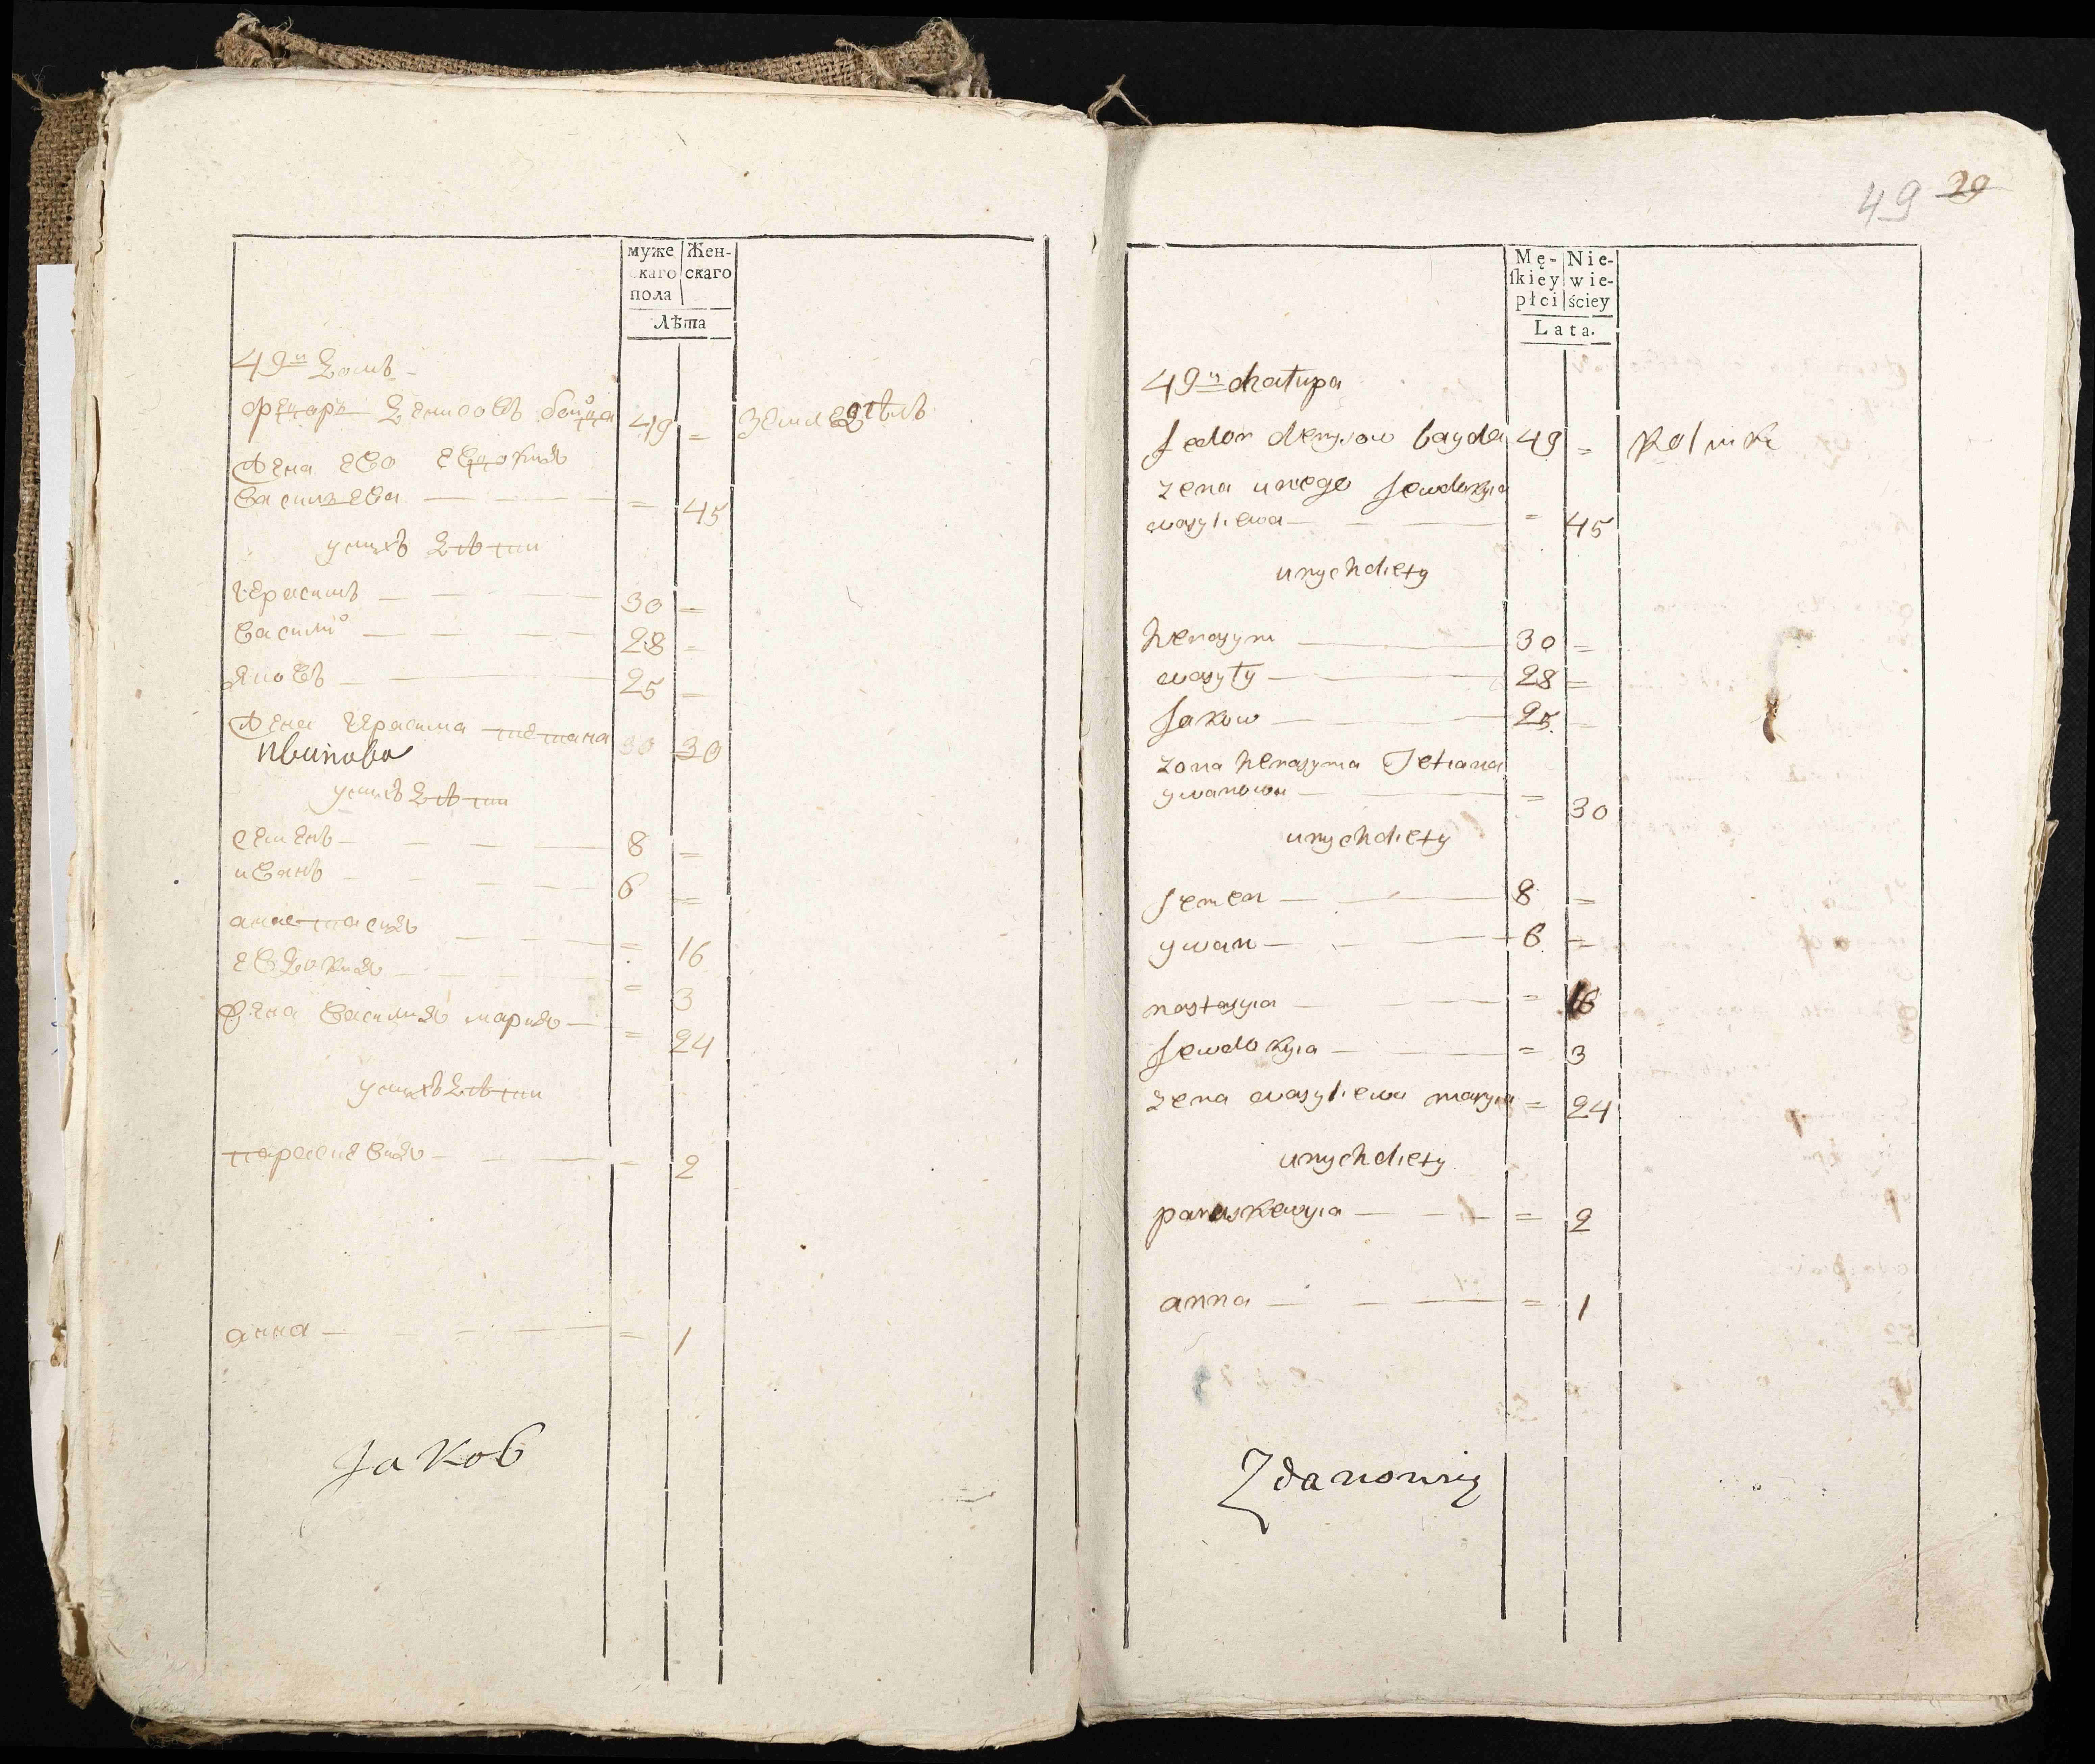 муже Жен-
скаго скаго
пола
Лѣта
49й домъ
Федоръ денисовъ байда 49 = земледѣлъ
Жена ево евдокия
васильева = 45
у нихъ дѣти
герасимъ 30 =
василий 28 =
яковъ 25 =
Жена герасима татиана
иванова 30 30
у нихъ дѣти
семенъ 8 =
иванъ 6 =
анастасия = 16
евдокия = 3
Жена василия мария = 24
у нихъ дѣти
параскевия = 2
анна = 1
Jakob
49 29
Mę- Nie-
ſkiey wie-
płci ściey
Lata.
49a chałupa
fedor denysow bayda 49 = Rolnik
zena unego Jewdokyia
wasyliewa = 45
unych diety
herasym 30 =
wasyły 28 =
Jakow 25 =
zona herasyma Tetiana
ywanowa = 30
unych diety
semen 8 =
ywan 6 =
nastasyia = 16
Jewdokyia = 3
zena wasyliewa maryia = 24
unych diety
paraskewyia = 2
anna = 1
Zdanowicz